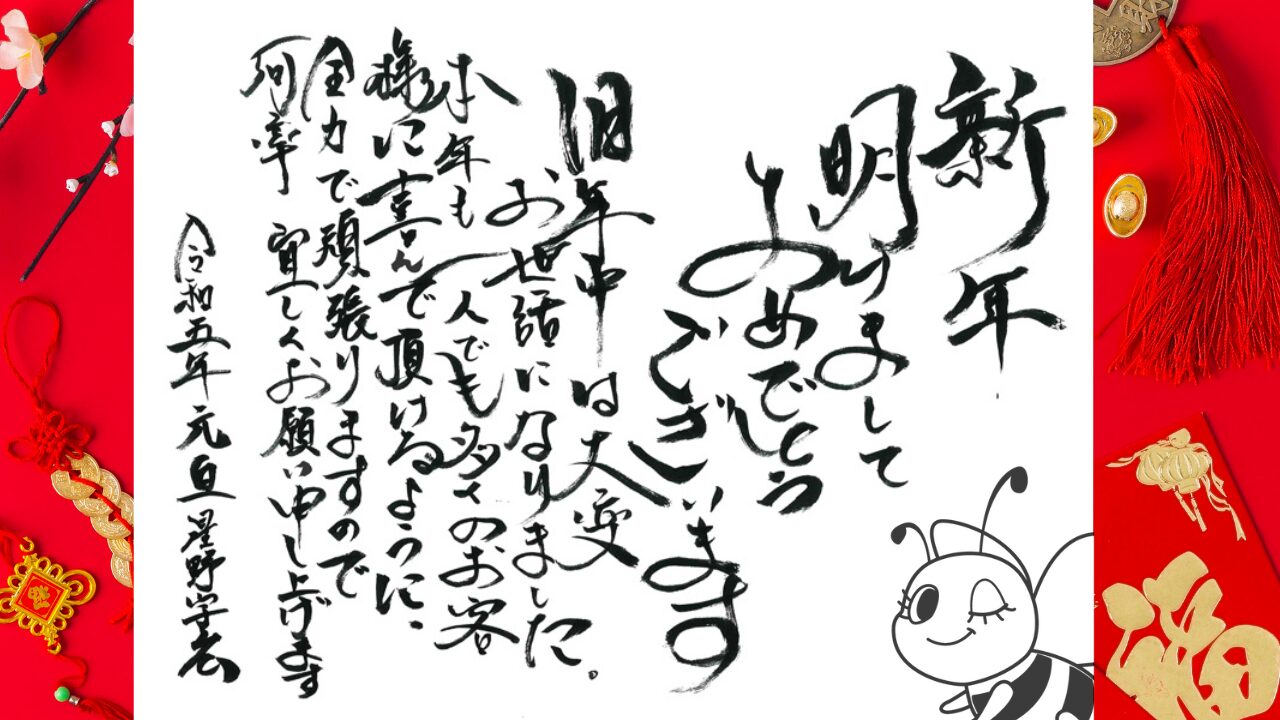 新年
明けまして
おめでとう
ございます
旧年中は大変
お世話になりました。
本年も一人でも多くのお客
様に喜んで頂けるように、
全力で頑張りますので
何卒宜しくお願い申し上げます
令和五年元旦星野
福